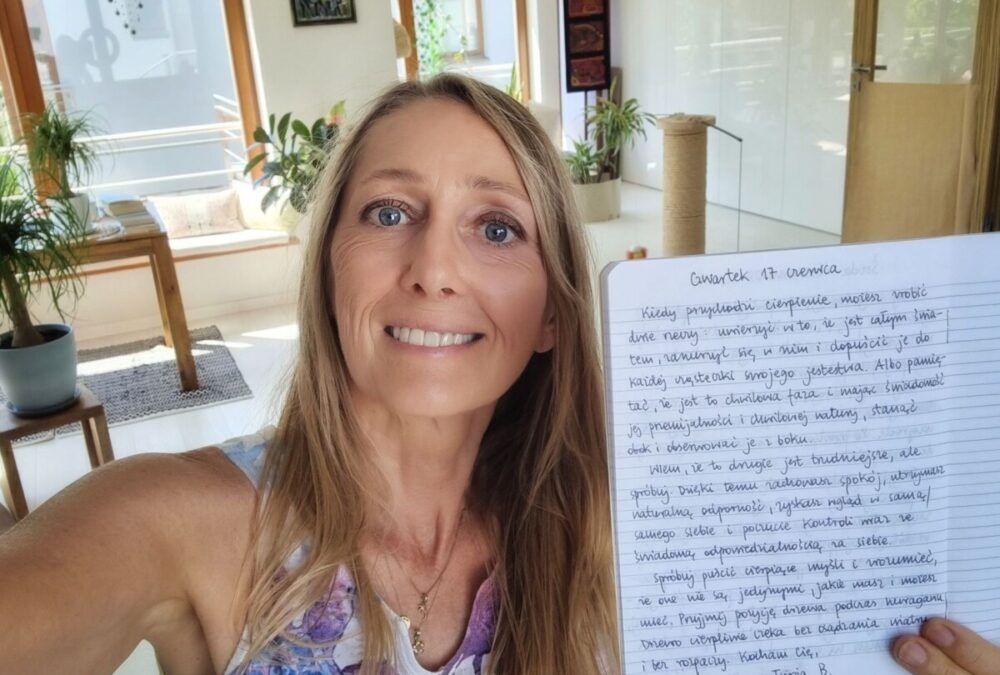 Czwartek 17 czerwca
Kiedy przychodzi cierpienie, możesz zrobić
dwie rzeczy: uwierzyć w to, że jest całym świa-
tem, zanurzyć się w nim i dopuścić je do
każdej cząsteczki swojego jestestwa. Albo pamię-
tać, że jest to chwilowa faza i mając świadomość
jej przemijalności i chwilowej natury, stanąć
obok i obserwować je z boku.
Wiem, że to drugie jest trudniejsze, ale
spróbuj. Dzięki temu zachowasz spokój, utrzymasz
naturalną odporność, zyskasz wgląd w samą/
samego siebie i poczucie kontroli wraz ze
świadomą odpowiedzialnością za siebie.
Spróbuj puścić cierpiące myśli i zrozumieć,
że one nie są jedynymi, jakie masz i możesz
mieć. Przyjmij pozycję drzewa podczas huraganu.
Drzewo cierpliwie czeka bez osądzania wiatru
i bez rozpaczy. Kocham Cię,
B.